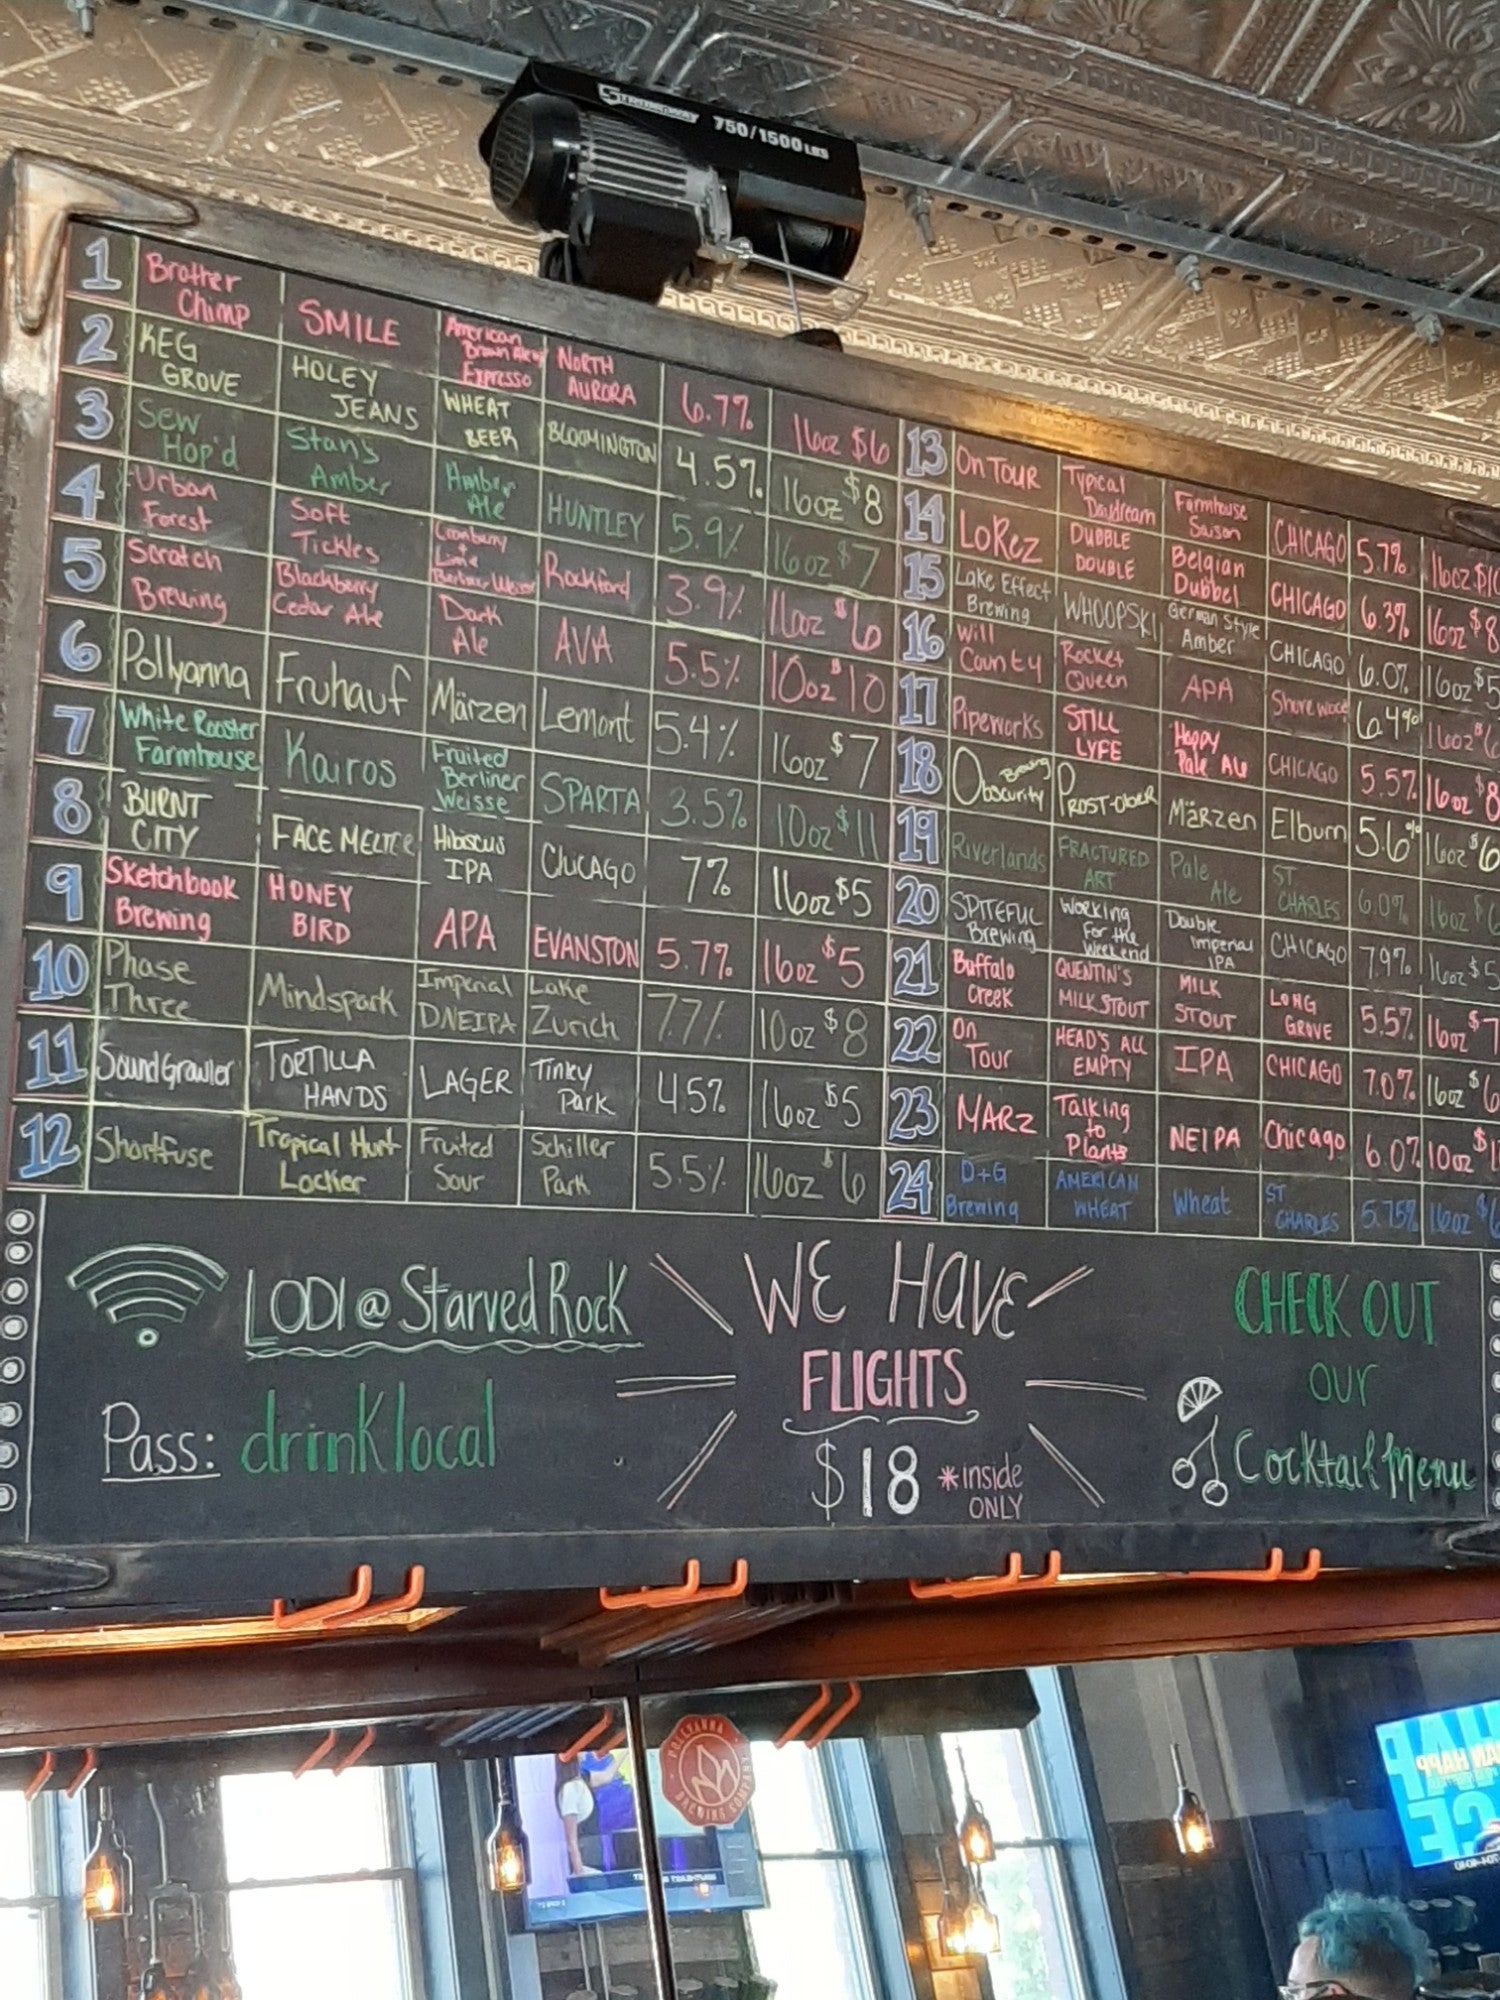 STRONGWAY 750/1500 LBS
1 Brother Chimp SMILE American Brown Ale w/ Expresso NORTH AURORA 6.7% 16oz $6
2 KEG GROVE HOLEY JEANS WHEAT BEER BLOOMINGTON 4.5% 16oz $8
3 Sew Hop'd Stan's Amber Amber Ale HUNTLEY 5.9% 16oz $7
4 Urban Forest Soft Tickles Cranberry + Lime Berliner Weisse Rockford 3.9% 16oz $6
5 Scratch Brewing Blackberry Cedar Ale Dark Ale AVA 5.5% 10oz $10
6 Pollyanna Fruhauf Märzen Lemont 5.4% 16oz $7
7 White Rooster Farmhouse Kairos Fruited Berliner Weisse SPARTA 3.5% 10oz $11
8 BURNT CITY FACE MELTER Hibiscus IPA CHICAGO 7% 16oz $5
9 Sketchbook Brewing HONEY BIRD APA EVANSTON 5.7% 16oz $5
10 Phase Three Mindspark Imperial DNEIPA Lake Zurich 7.7% 10oz $8
11 SoundGrowler TORTILLA HANDS LAGER Tinley Park 4.5% 16oz $5
12 Shortfuse Tropical Hurt Locker Fruited Sour Schiller Park 5.5% 16oz $6
13 On TOUR Typical Daydream Farmhouse Saison CHICAGO 5.7% 16oz
14 LoRez DUBBLE DOUBLE Belgian Dubbel CHICAGO 6.3% 16oz $8
15 Lake Effect Brewing WHOOPSKI German Style Amber CHICAGO 6.0% 16oz $5
16 Will County Rocket Queen APA Shorewood 6.4% 16oz
17 Pipeworks STILL LYFE Hoppy Pale Ale CHICAGO 5.5% 16oz $8
18 Obscurity Brewing PROST-OBER Märzen Elburn 5.6% 16oz $6
19 Riverlands FRACTURED ART Pale Ale ST CHARLES 6.0% 16oz
20 SPITEFUL Brewing Working For the Weekend Double Imperial IPA CHICAGO 7.9% 16oz $5
21 Buffalo Creek QUENTIN'S MILK STOUT MILK STOUT LONG GROVE 5.5% 16oz $7
22 On Tour HEAD'S ALL EMPTY IPA CHICAGO 7.0% 16oz $6
23 MARZ Talking to Plants NEIPA Chicago 6.0% 10oz
24 D+G Brewing AMERICAN WHEAT Wheat ST CHARLES 5.75% 16oz
LODI @ Starved Rock
Pass: drinklocal
WE HAVE
FLIGHTS
$18 *inside ONLY
CHECK OUT
our
Cocktail Menu
POLLYANNA
BREWING COMPANY